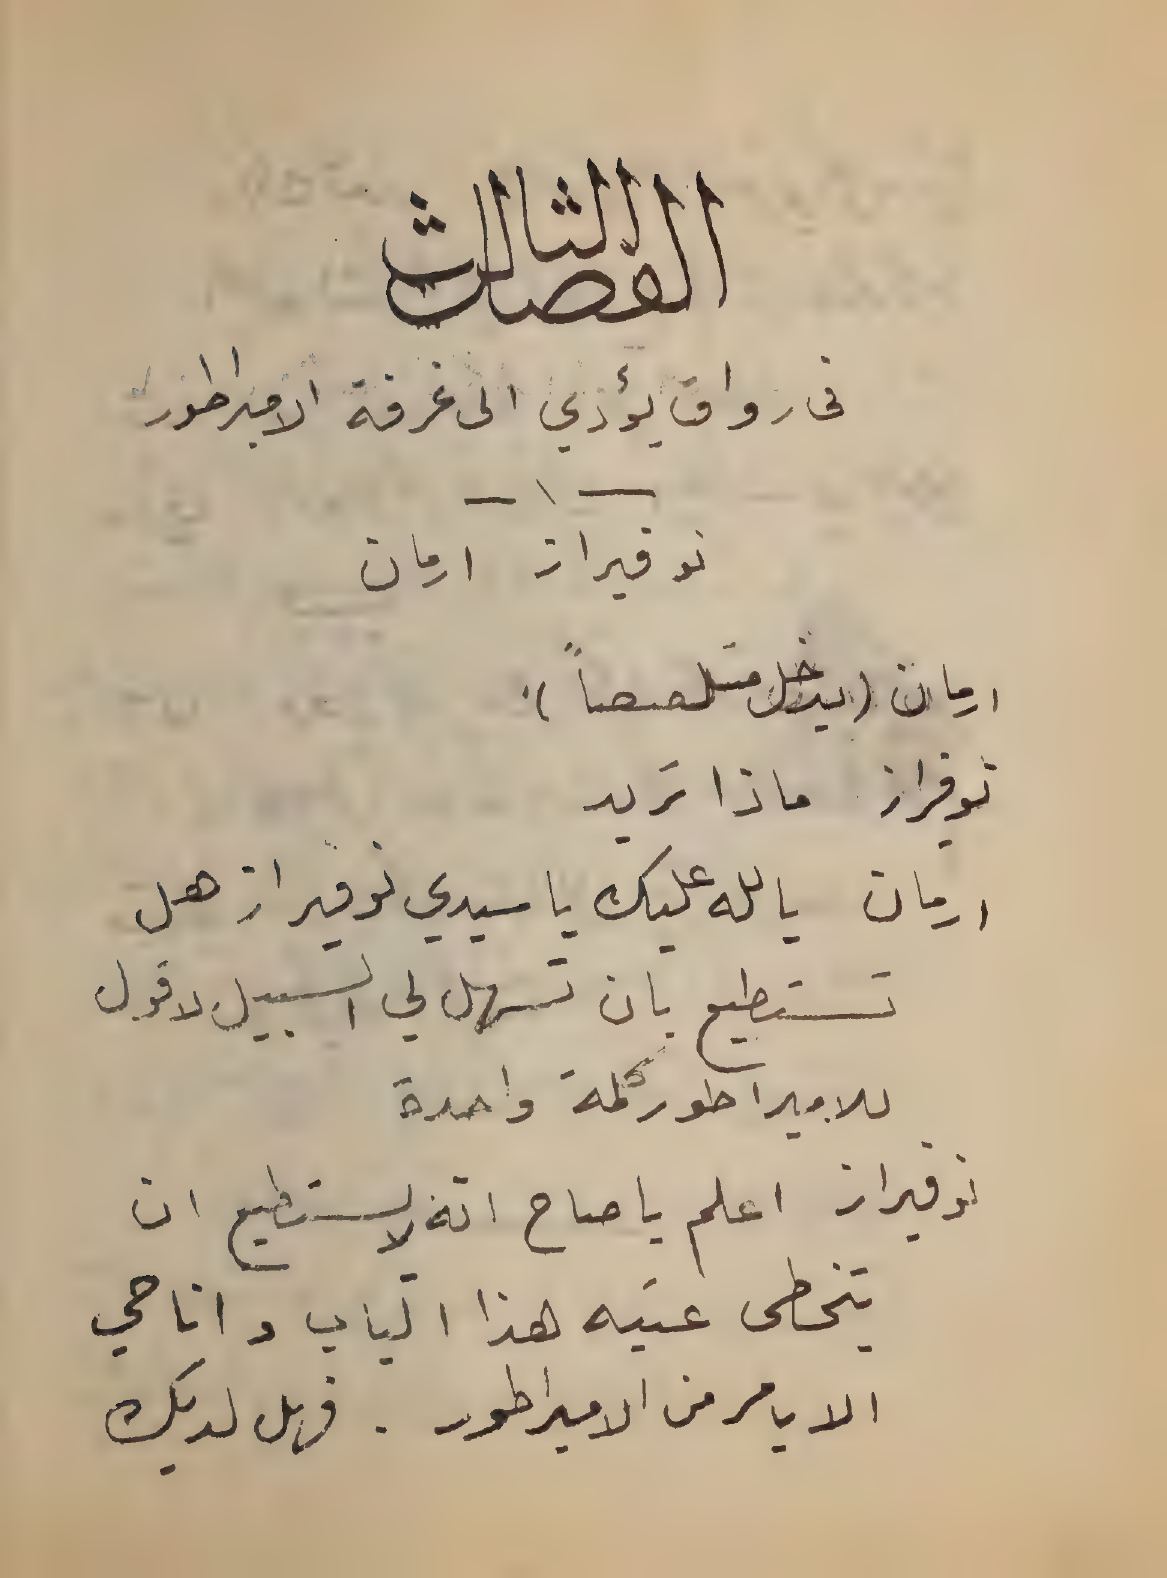 الفصل الثالث
في رواق يؤذي الى غرفة الامبراطور
— ١ —
نوفيراز ارمان
ارمان (يدخل متلصصاً)
نوفيراز ماذا تريد
ارمان يالله عليك يا سيدي نوفيراز هل
تستطيع بان تسهل لي السبيل لاقول
للامبراطور كلمة واحدة
نوفيراز اعلم يا صاح انه لا يستطيع ان
يتخطى عتبه هذا الباب وانا حي
الا بامر من الامبراطور . فهل لديك